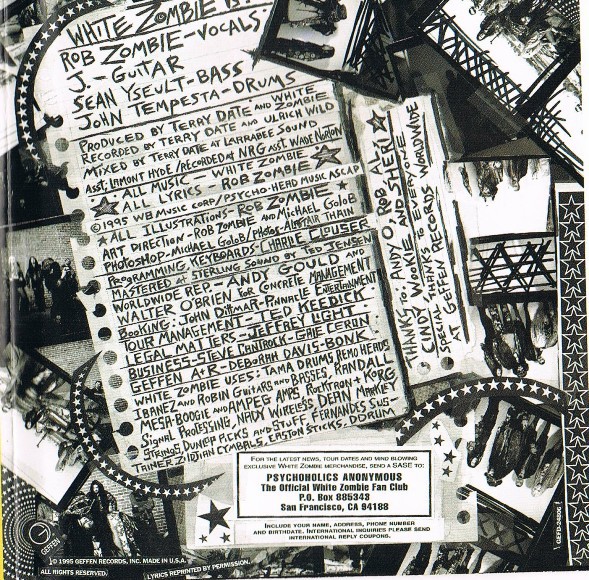 WHITE ZOMBIE IS:
ROB ZOMBIE-VOCALS
J.-GUITAR
SEAN YSEULT-BASS
JOHN TEMPESTA-DRUMS
PRODUCED BY TERRY DATE AND WHITE ZOMBIE
RECORDED BY TERRY DATE AND ULRICH WILD
MIXED BY TERRY DATE AT LARRABEE SOUND
ASST; LAMONT HYDE / RECORDED AT NRG ASST. WADE NORTON
ALL MUSIC - WHITE ZOMBIE
ALL LYRICS - ROB ZOMBIE
©1995 WB MUSIC CORP/PSYCHO-HEAD MUSIC ASCAP
ALL ILLUSTRATIONS-ROB ZOMBIE
ART DIRECTION-ROB ZOMBIE AND MICHAEL GOLOB
PHOTOSHOP-MICHAEL GOLOB/PHOTOS-ALISTAIR THAIN
PROGRAMMING, KEYBOARDS-CHARLIE CLOUSER
MASTERED AT STERLING SOUND BY TED JENSEN
WORLDWIDE REP-ANDY GOULD AND
WALTER O'BRIEN FOR CONCRETE MANAGEMENT
BOOKING: JOHN DITTMAR-PINNACLE ENTERTAINMENT
TOUR MANAGEMENT-TED KEEDICK
LEGAL MATTERS-JEFFREY LIGHT
BUSINESS-STEVE GAIE CERUN
GEFFEN A+R-DEBORAH DAVIS-BONK
WHITE ZOMBIE USES: TAMA DRUMS, REMO HEADS
IBANEZ AND ROBIN GUITARS AND BASSES, RANDALL
MESA-BOOGIE AND AMPEG AMPS, ROCKTRON + KORG
SIGNAL PROCESSING, NADY WIRELESS, DEAN MARKLEY
STRINGS, DUNLOP PICKS AND STUFF, FERNANDES SUS-
TAINER ZILDJIAN CYMBALS, EASTON STICKS, DDRUM
THANKS TO: ANDY O, ROB, AL,
CINDY WOOKIE AND SHERI
SPECIAL THANKS EVERYONE
AT GEFFEN RECORDS WORLDWIDE
FOR THE LATEST NEWS, TOUR DATES AND MIND BLOWING
EXCLUSIVE WHITE ZOMBIE MERCHANDISE, SEND A SASE TO:
PSYCHOHOLICS ANONYMOUS
The Official White Zombie Fan Club
P.O. Box 885343
San Francisco, CA 94188
INCLUDE YOUR NAME, ADDRESS, PHONE NUMBER
AND BIRTHDATE. INTERNATIONAL INQUIRIES PLEASE SEND
INTERNATIONAL REPLY COUPONS.
GEFFEN
© 1995 GEFFEN RECORDS, INC. MADE IN U.S.A.
ALL RIGHTS RESERVED.
LYRICS REPRINTED BY PERMISSION.
GEFD-24806